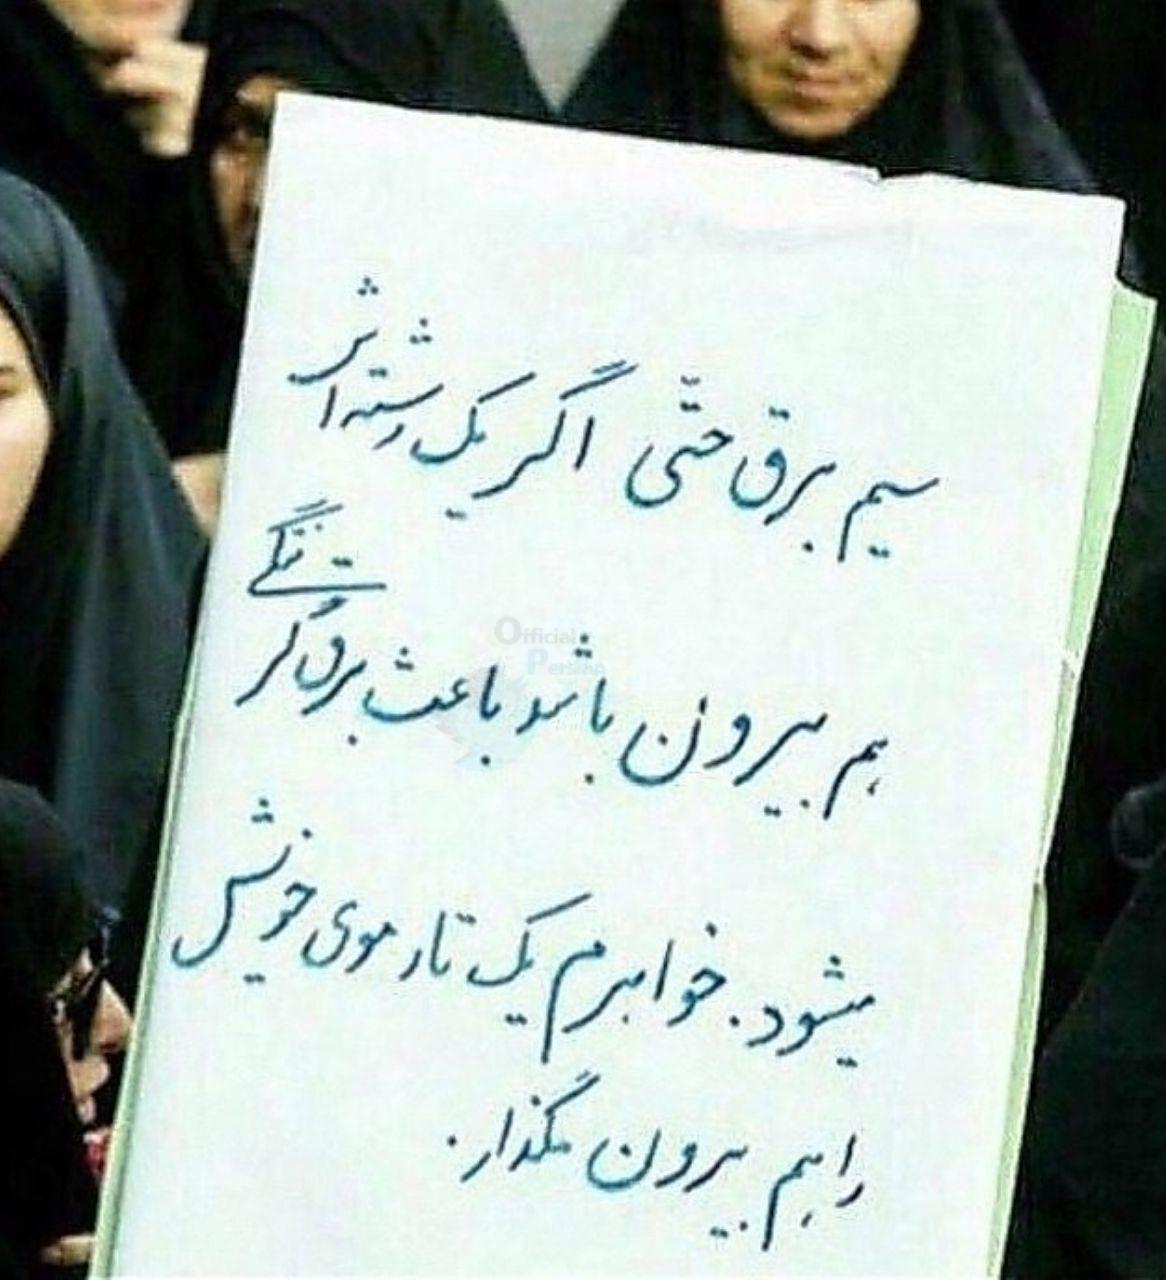 سیم برق حتّی اگر یک رشته اش
هم بیرون باشد باعث برق گرفتگی
میشود. خواهرم یک تار موی خویش
را هم بیرون مگذار.
Official
Persian